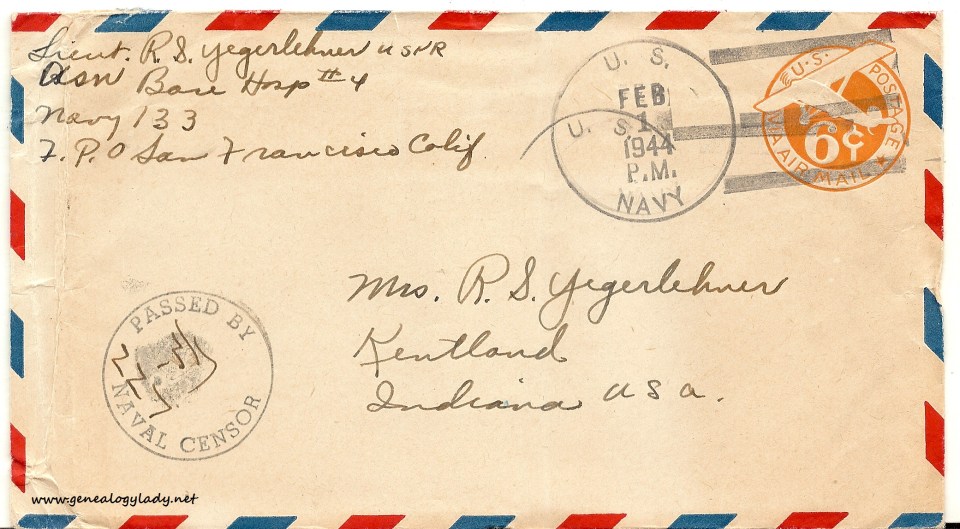 Lieut. R. S. Yegerlehner USNR
USN Base Hosp #4
Navy 133
F. P. O San Francisco Calif.
U. S.
FEB
1
1944
P.M.
NAVY
U. S.
U.S. POSTAGE
6¢
VIA AIR MAIL
Mrs. R. S. Yegerlehner
Kentland
Indiana USA.
PASSED BY
NAVAL CENSOR
www.genealogylady.net